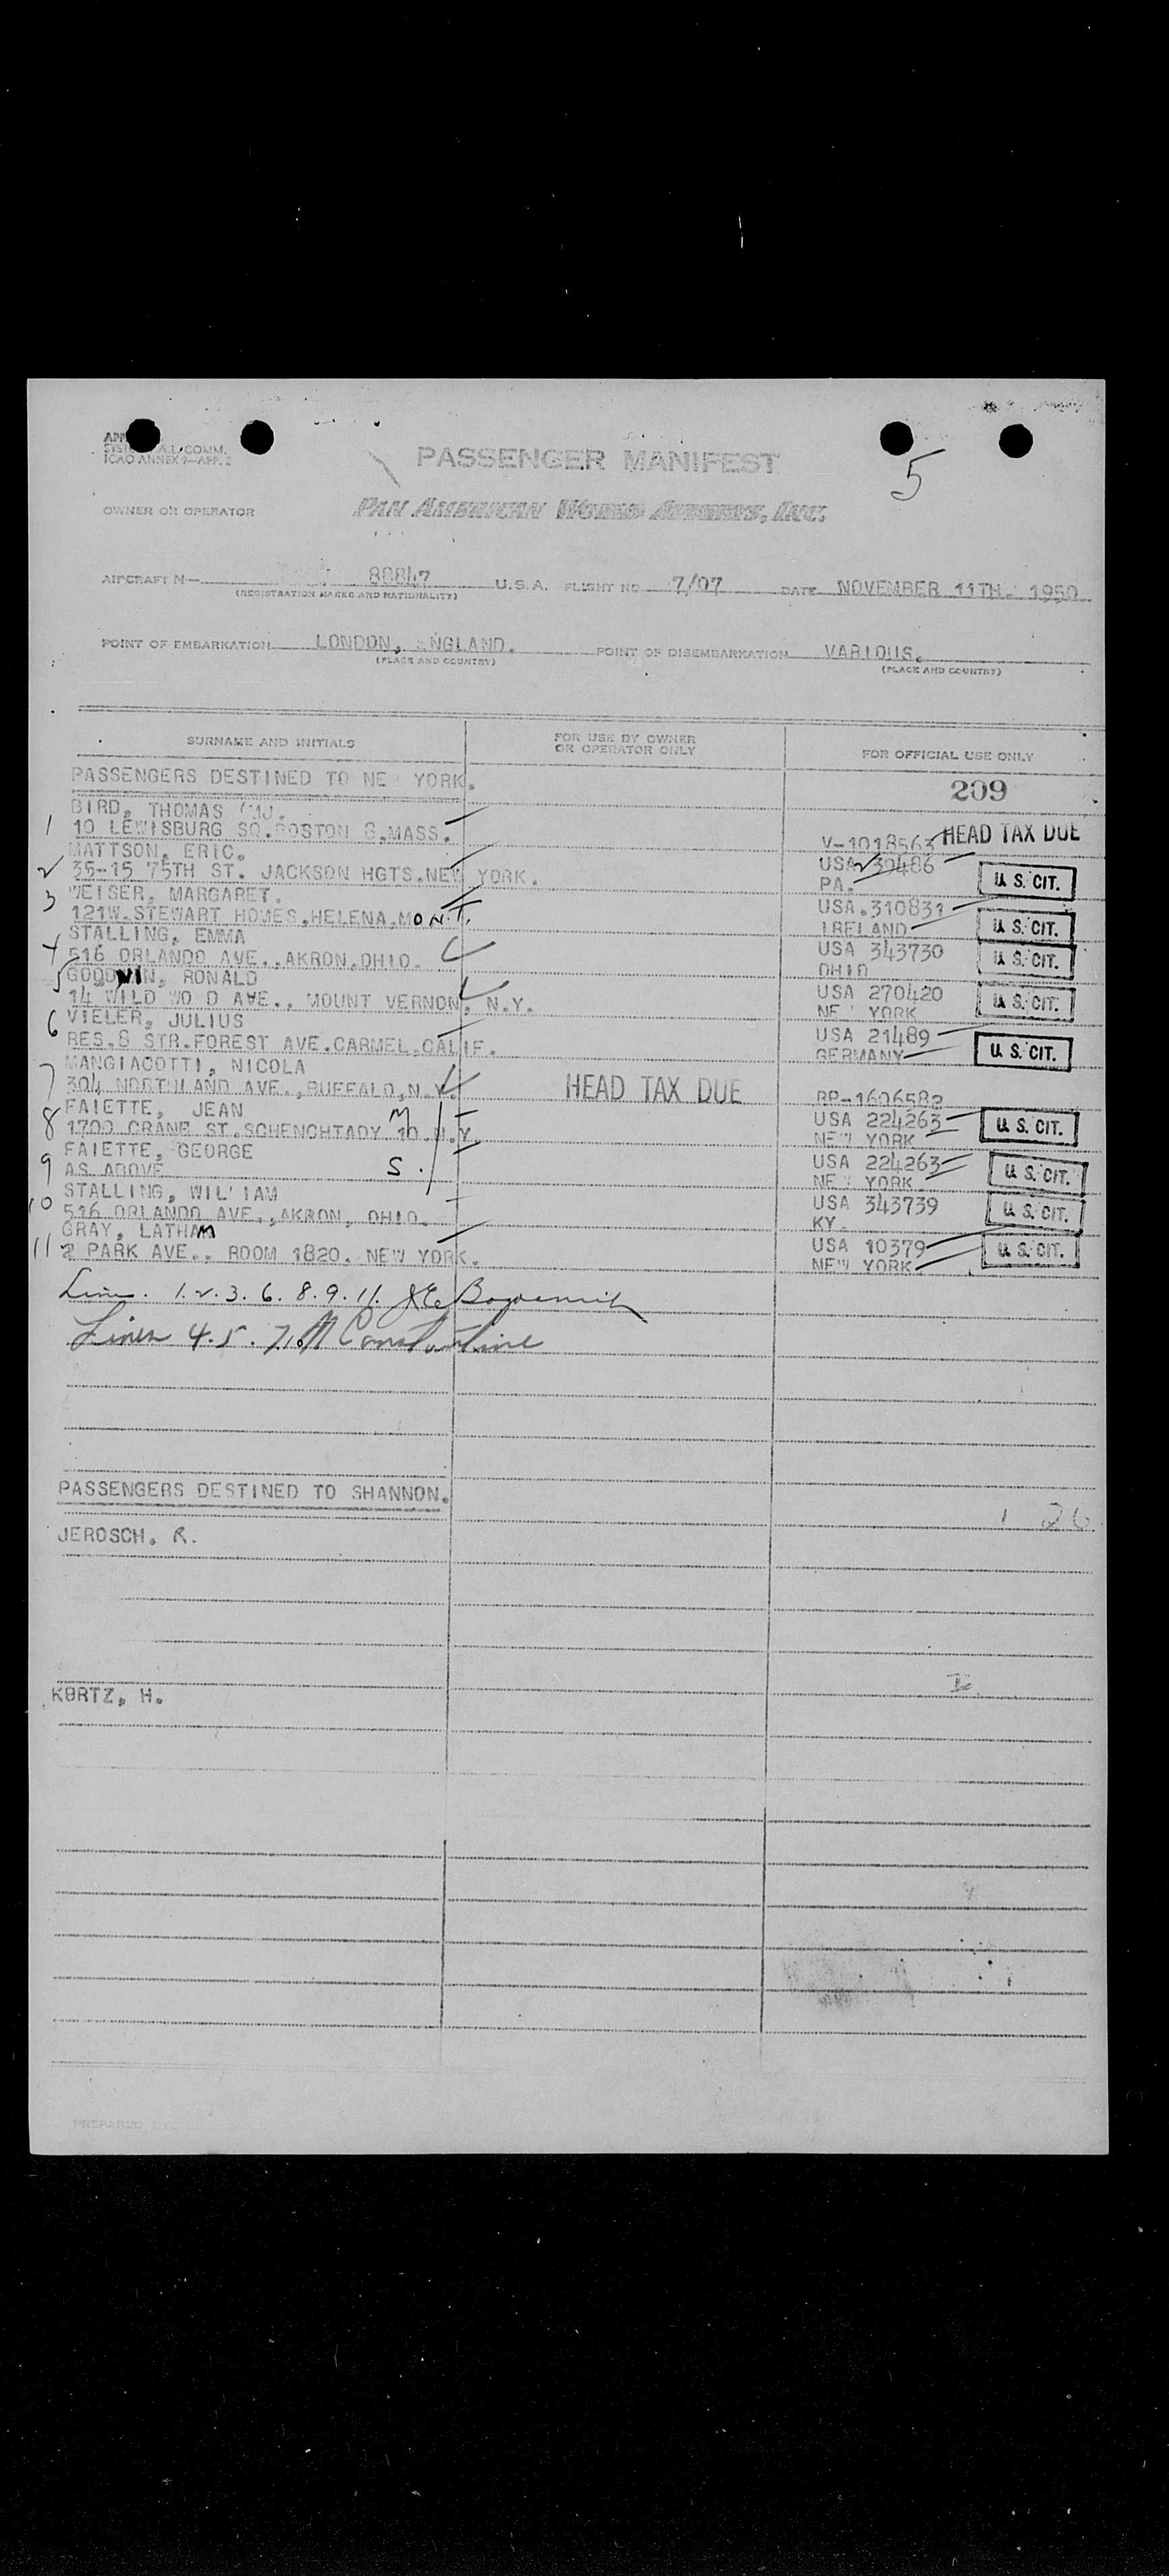 SYSTEM A.L. COMM.
ICAO ANNEX 9—APP. 2
PASSENGER MANIFEST
5
OWNER OR OPERATOR
PAN AMERICAN WORLD AIRWAYS, INC.
AIRCRAFT N— 88847 U.S.A. FLIGHT NO 7/07 DATE NOVEMBER 11TH. 1950
(REGISTRATION MARKS AND NATIONALITY)
POINT OF EMBARKATION LONDON, ENGLAND. POINT OF DISEMBARKATION VARIOUS.
(PLACE AND COUNTRY) (PLACE AND COUNTRY)
SURNAME AND INITIALS FOR USE BY OWNER OR OPERATOR ONLY FOR OFFICIAL USE ONLY
PASSENGERS DESTINED TO NE YORK. 209
BIRD, THOMAS
1 10 LEWISBURG SQ.BOSTON 8,MASS. V-1018563 HEAD TAX DUE
MATTSON, ERIC. USA 39486
2 35-15 75TH ST. JACKSON HGTS.NEW YORK. PA. U.S. CIT.
WEISER, MARGARET. USA.310831
3 121W.STEWART HOMES.HELENA.MONT. IRELAND U.S. CIT.
STALLING, EMMA USA 343730
4 516 ORLANDO AVE.,AKRON,OHIO. OHIO U.S. CIT.
5 GOODWIN, RONALD USA 270420
14 WILD WO D AVE., MOUNT VERNON, N.Y. NE YORK U.S. CIT.
VIELER, JULIUS USA 21489
6 RES.8 STR.FOREST AVE.CARMEL.CALIF. GERMANY U.S. CIT.
MANGIACOTTI, NICOLA
7 304 NORTHLAND AVE.,BUFFALO,N.Y. HEAD TAX DUE RP-1606582
FAIETTE, JEAN M USA 224263
8 1700 CRANE ST.SCHENCHTADY 10.N.Y. NEW YORK U.S. CIT.
FAIETTE, GEORGE USA 224263
9 AS ABOVE S. NEW YORK U.S. CIT.
STALLING, WIL IAM USA 343739
10 516 ORLANDO AVE.,AKRON, OHIO. KY. U.S. CIT.
GRAY, LATHAM USA 10379
11 2 PARK AVE., ROOM 1820. NEW YORK. NEW YORK U.S. CIT.
1.2.3.6.8.9.11.
Lines 4.5.7. M Constantine
PASSENGERS DESTINED TO SHANNON.
1 26
JEROSCH. R.
KURTZ, H.
PREPARED BY